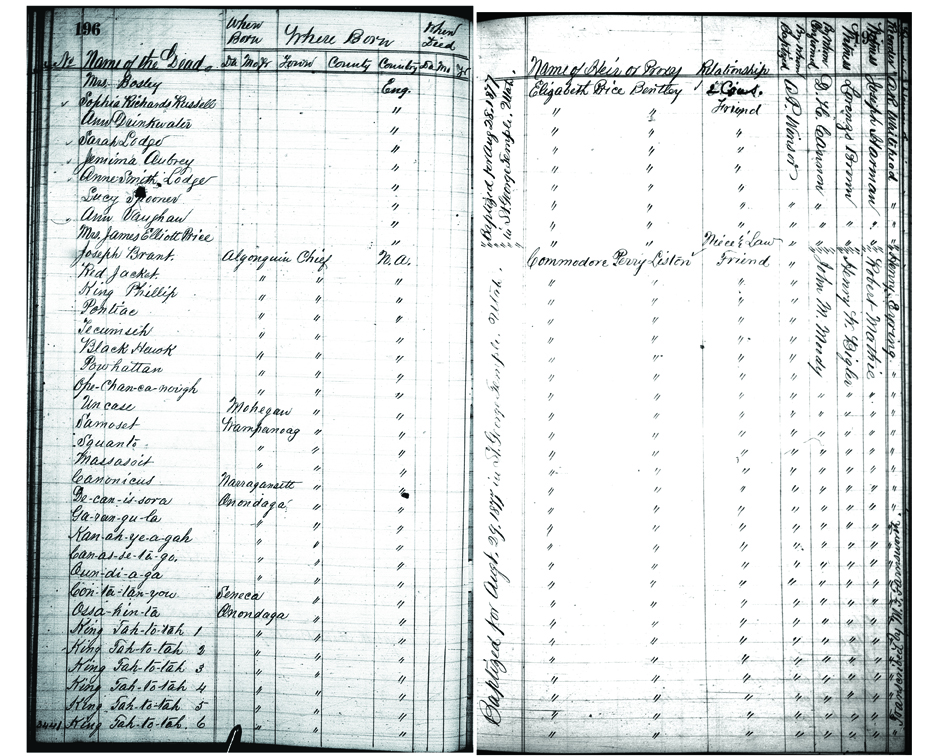 196
When Born
Where Born
When Died
No Name of the Dead. Da Mo Yr Town County Country Da Mo Yr
Mrs. Bosley Eng.
Sophia Richards Russell "
Ann Drinkwater "
Sarah Lodge "
Jemima Aubrey "
Anne Smith Lodge "
Lucy Spooner "
Ann Vaughan "
Mrs. James Elliott Price "
Joseph Brant. Algonquin Chief N.A.
Red Jacket. " " "
King Phillip " " "
Pontiac " " "
Tecumseh " " "
Black Hawk " " "
Powhattan " " "
Ope-Chan-ca-nough " " "
Uncase Mohegan " "
Samoset Wampanoag " "
Squanto. " " "
Massasoit " " "
Canonicus Narragansett " "
De-can-is-sora Onondaga " "
Ga-ran-gu-la " " "
Kan-ah-ye-a-gah " " "
Can-as-se-ta-go. " " "
Oun-di-a-ga " " "
Con-ta-tan-you Seneca " "
Ossa-hin-ta Onondaga " "
King Tah-to-tah 1 " " "
King Tah-to-tah 2 " " "
King Tah-to-tah 3 " " "
King Tah-to-tah 4 " " "
King Tah-to-tah 5 " " "
King Tah-to-tah. 6 " " "
Baptized for Aug 28. 1877
in St George Temple, Utah.
Baptized for Augt. 29, 1877 in St. George Temple. Utah.
Name of Heir or Proxy Relationship
Elizabeth Price Bentley 2 Cous.
" " Friend
" " "
" " "
" " "
" " "
" " "
" " "
" " Niece in Law
Commodore Perry Liston Friend
" " "
Baptized
By whom
A. P. Winsor
By whom Confirmed
D. H. Cannon
John M. Moody
Witness
Lorenzo Brown
Henry W. Bigler
Witness
Joseph Harman
Robert Mathie
Henry Eyring
Transcribed by M. F. Farnsworth.